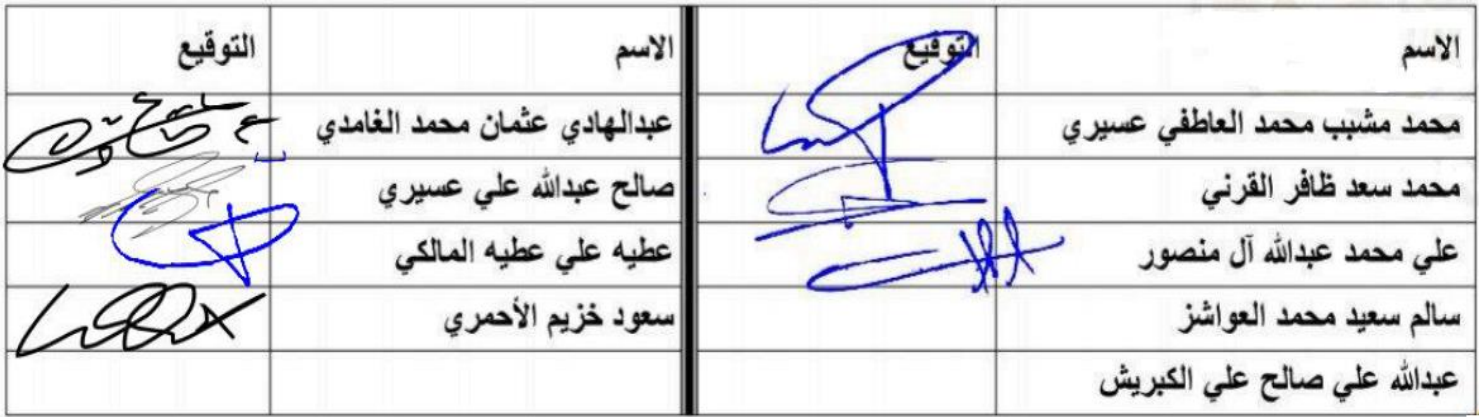 الاسم التوقيع الاسم التوقيع
محمد مشبب محمد العاطفي عسيري عبدالهادي عثمان محمد الغامدي
محمد سعد ظافر القرني صالح عبدالله علي عسيري
علي محمد عبدالله آل منصور عطيه علي عطيه المالكي
سالم سعيد محمد العواشز سعود خزيم الأحمري
عبدالله علي صالح علي الكبريش